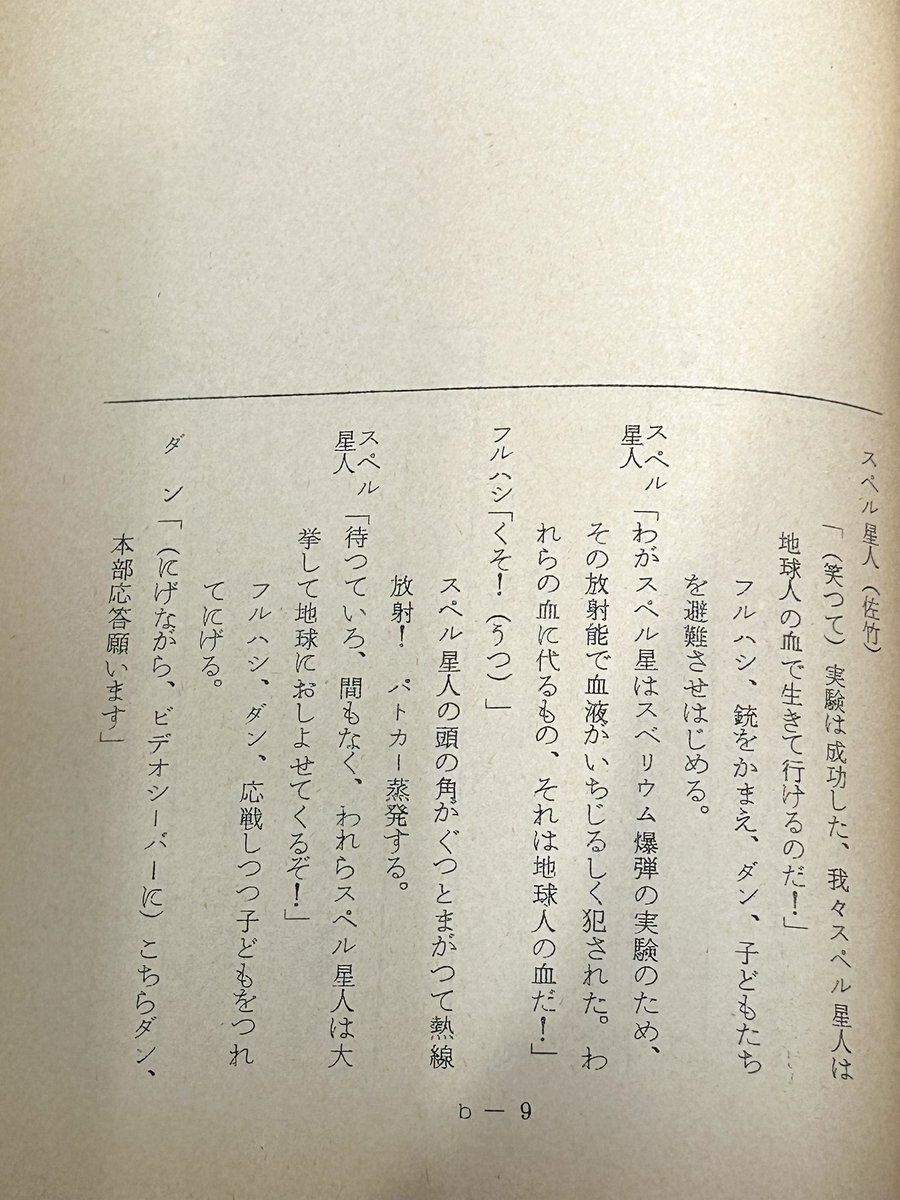 スペル星人（佐竹）
「（笑つて）実験は成功した、我々スペル星人は
地球人の血で生きて行けるのだ！」
フルハシ、銃をかまえ、ダン、子どもたち
を避難させはじめる。
スペル星人「わがスペル星はスペリウム爆弾の実験のため、
その放射能で血液がいちじるしく犯された。わ
れらの血に代るもの、それは地球人の血だ！」
フルハシ「くそ！（うつ）」
スペル星人の頭の角がぐつとまがつて熱線
放射！　パトカー蒸発する。
スペル星人「待つていろ、間もなく、われらスペル星人は大
挙して地球におしよせてくるぞ！」
フルハシ、ダン、応戦しつつ子どもをつれ
てにげる。
ダン「（にげながら、ビデオシーバーに）こちらダン、
本部応答願います」
b－9